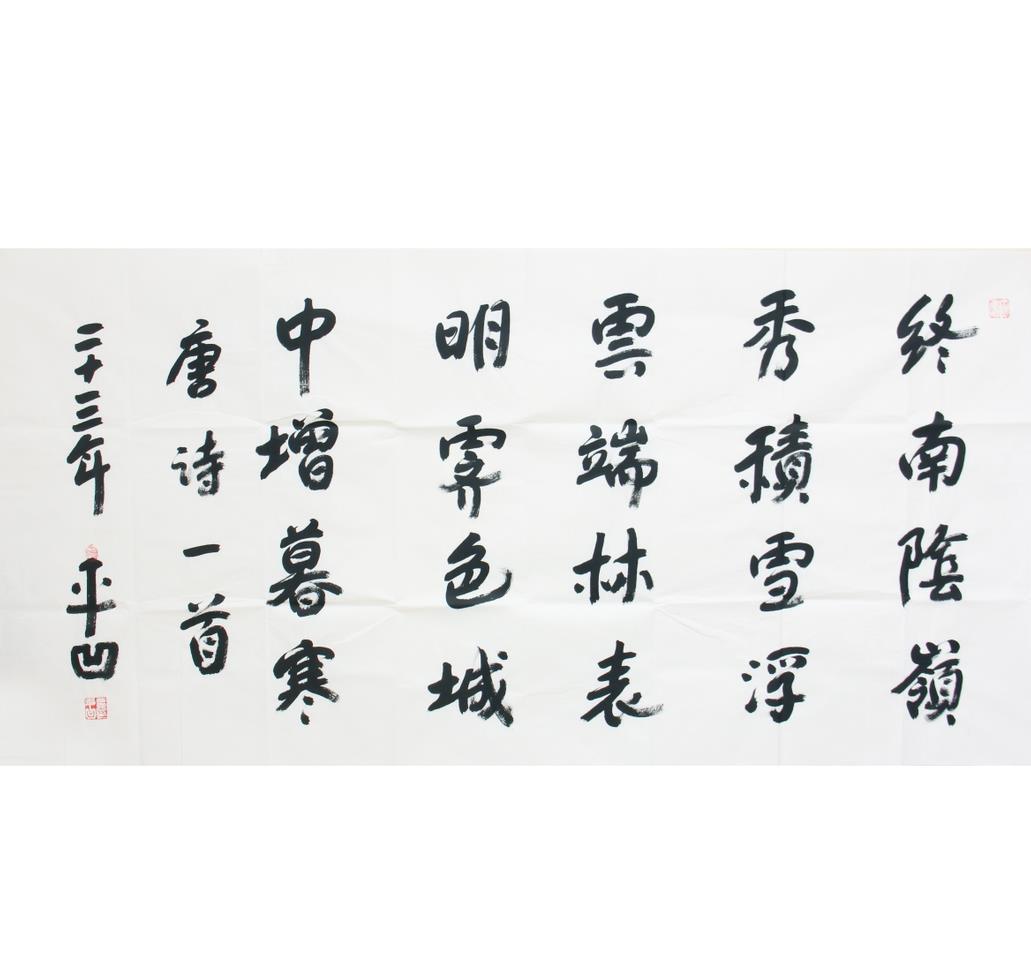 終南陰嶺
秀積雪浮
雲端林表
明霁色城
中增暮寒
唐诗一首
二十三年 平凹